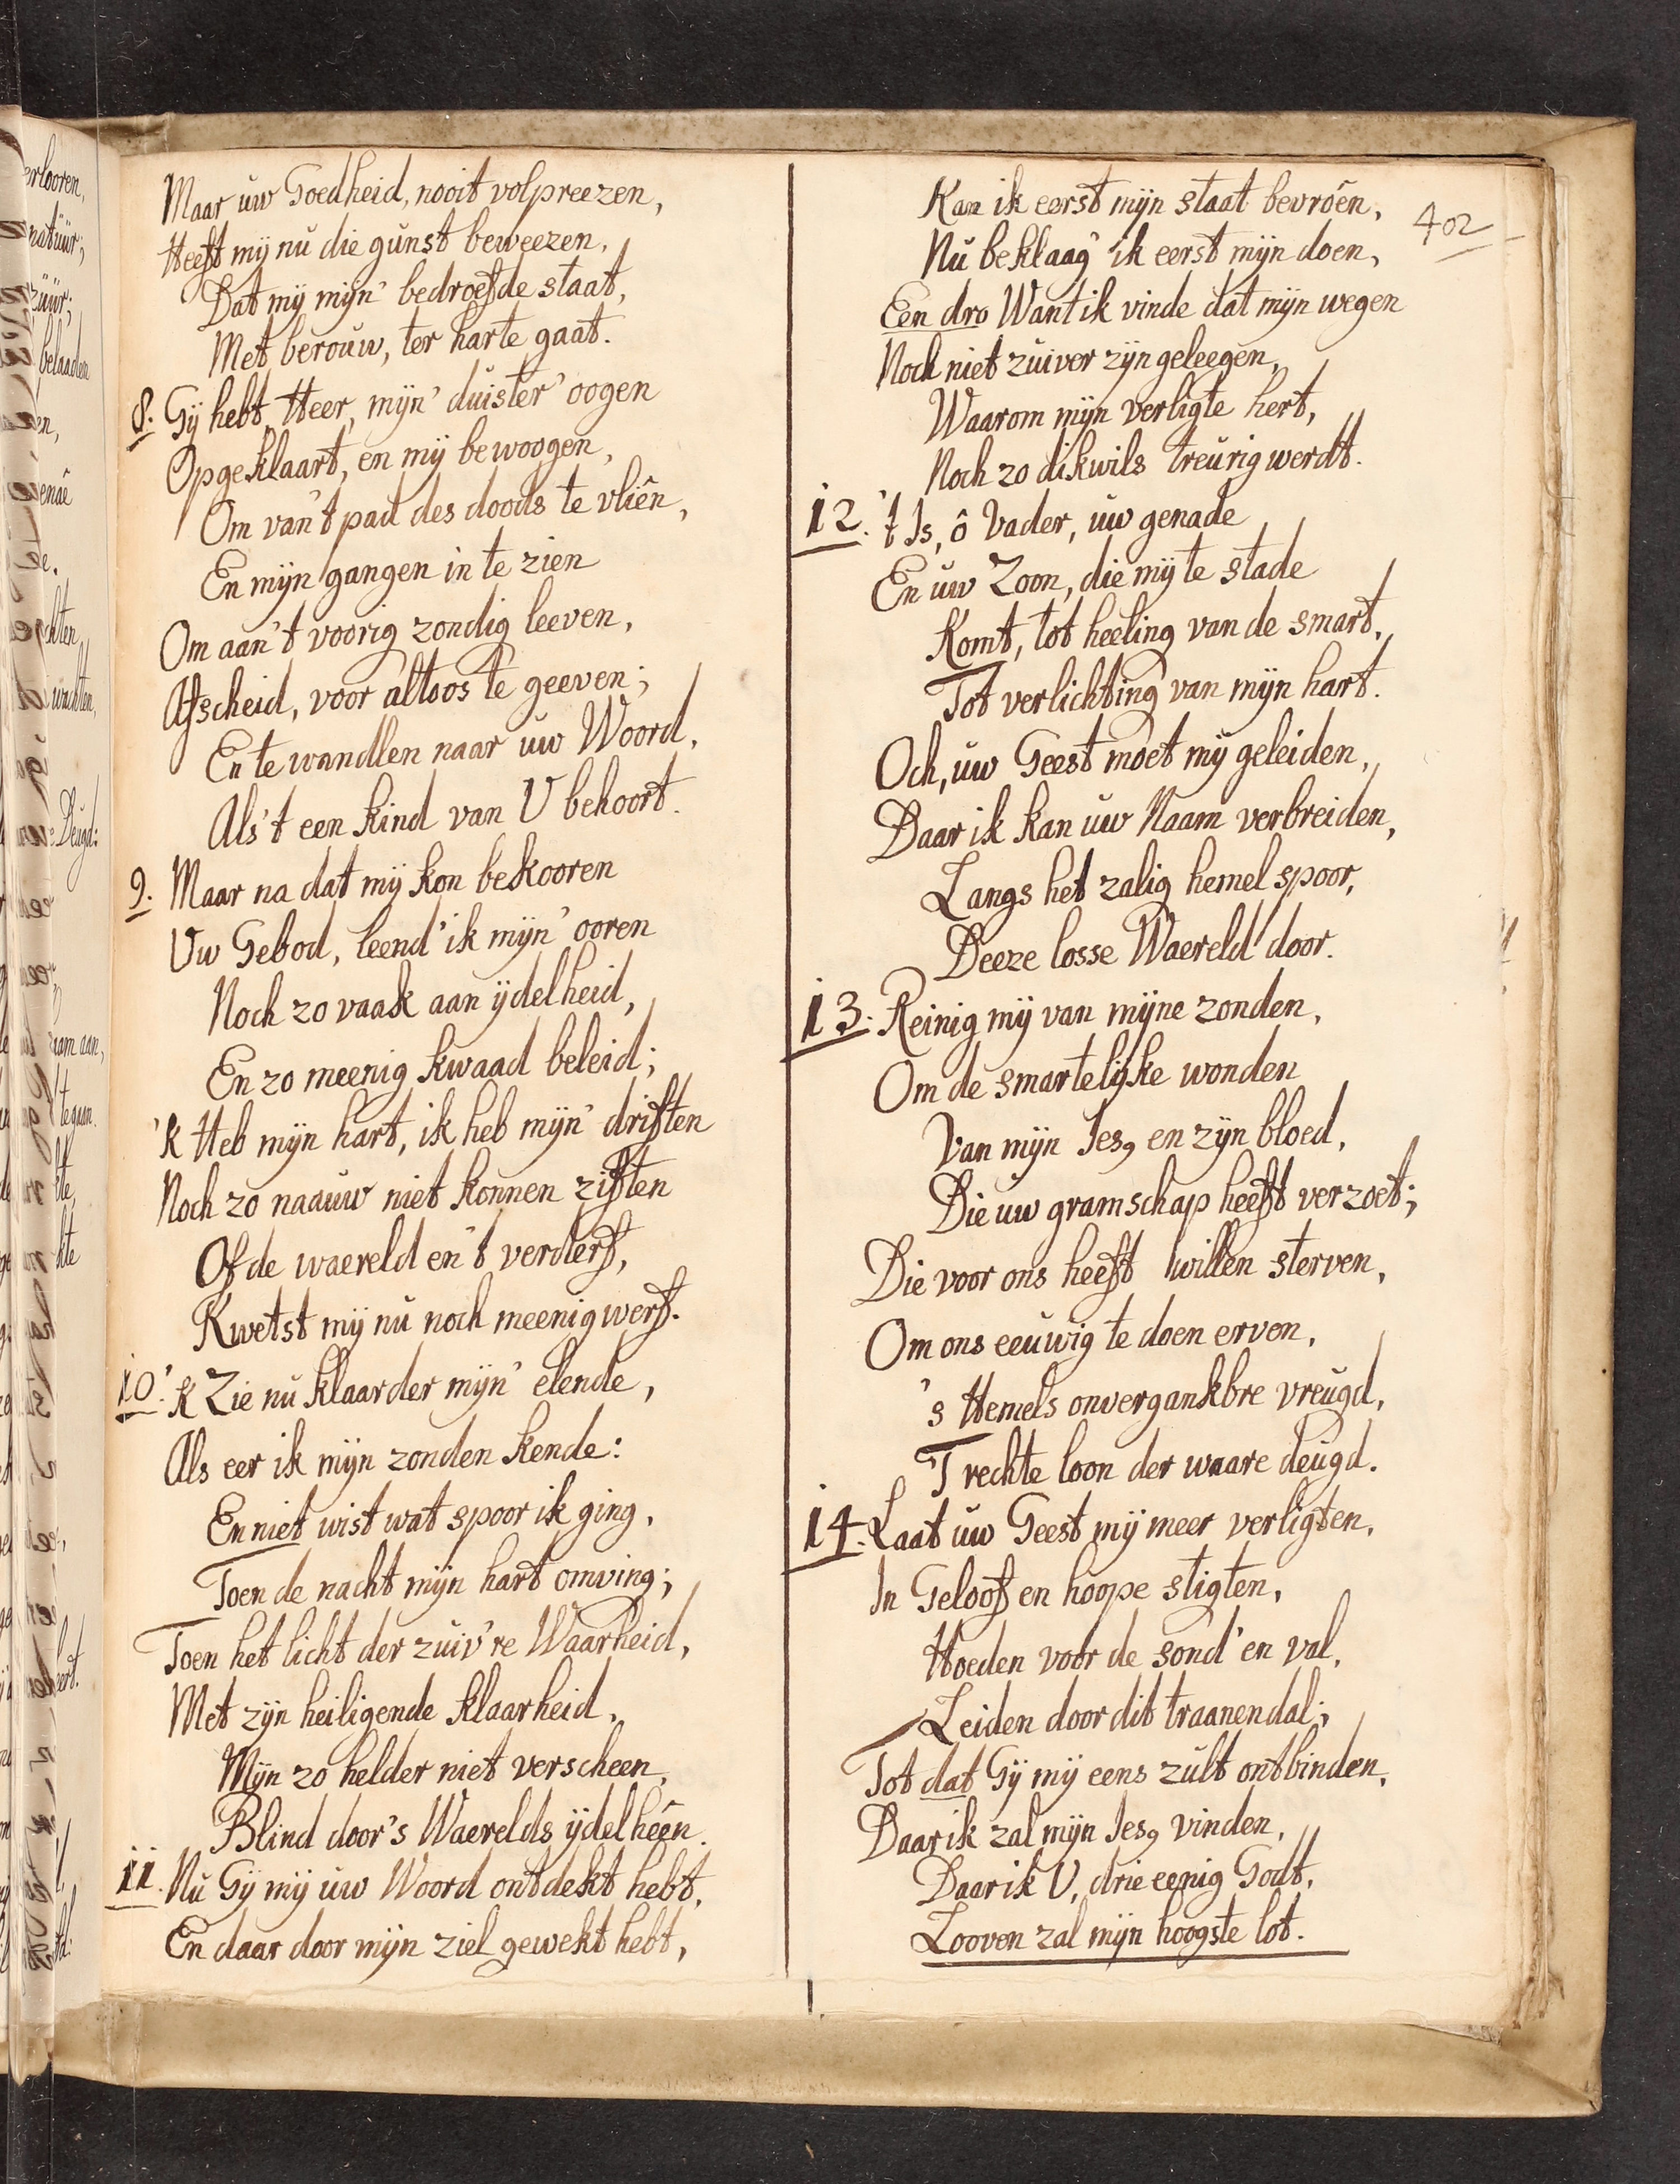 Maar uw Goedheid, nooit volpreezen,
Heeft mij nu die gunst beweezen,
Dat mij mijn' bedroefde staat,
Met berouw, ter harte gaat.
8. Gij hebt, Heer, mijn' duister' oogen
Opgeklaart, en mij bewoogen,
Om van 't pad des doods te vliên,
En mijn gangen in te zien
Om aan 't voorig zondig leeven,
Afscheid, voor altoos te geeven;
En te wandlen naar uw Woord,
Als 't een kind van U behoort.
9. Maar na dat mij kon bekooren
Uw Gebod, leend' ik mijn' ooren
Noch zo vaak aan ijdelheid,
En zo meenig kwaad beleid;
'k Heb mijn hart, ik heb mijn' driften
Noch zo naauw niet konnen ziften
Of de waereld en 't verderf,
Kwetst mij nu noch meenigwerf.
10. 'k Zie nu klaarder mijn' elende,
Als eer ik mijn zonden kende:
En niet wist wat spoor ik ging,
Toen de nacht mijn hart omving;
Toen het licht der zuiv're Waarheid,
Met zijn heiligende klaarheid,
Mijn zo helder niet verscheen,
Blind door 's Waerelds ijdelhêên.
11. Nu Gij mij uw Woord ontdekt hebt,
En daar door mijn ziel gewekt hebt,
Kan ik eerst mijn staat bevrôên,
Nu beklaag' ik eerst mijn doen,
Een dro Want ik vinde dat mijn wegen
Noch niet zuiver zijn geleegen,
Waarom mijn verligte hert,
Noch zo dikwils treurig werdt.
12. 't Is, ô Vader, uw genade
En uw Zoon, die mij te stade
Komt, tot heeling van de smart,
Tot verlichting van mijn hart.
Och, uw Geest moet mij geleiden,
Daar ik kan uw Naam verbreiden,
Langs het zalig hemel spoor,
Deeze losse Waereld door.
13. Reinig mij van mijne zonden,
Om de smartelijke wonden
Van mijn Jesꝰ en zijn bloed,
Die uw gramschap heeft verzoet;
Die voor ons heeft willen sterven,
Om ons eeuwig te doen erven,
's Hemels onvergankbre vreugd,
T rechte loon der waare deugd.
14. Laat uw Geest mij meer verligten,
In Geloof en hoope stigten,
Hoeden voor de sond' en val,
Leiden door dit traanendal;
Tot dat Gij mij eens zult ontbinden,
Daar ik zal mijn Jesꝰ vinden,
Daar ik U, drie eenig Godt,
Looven zal mijn hoogste lot.
402